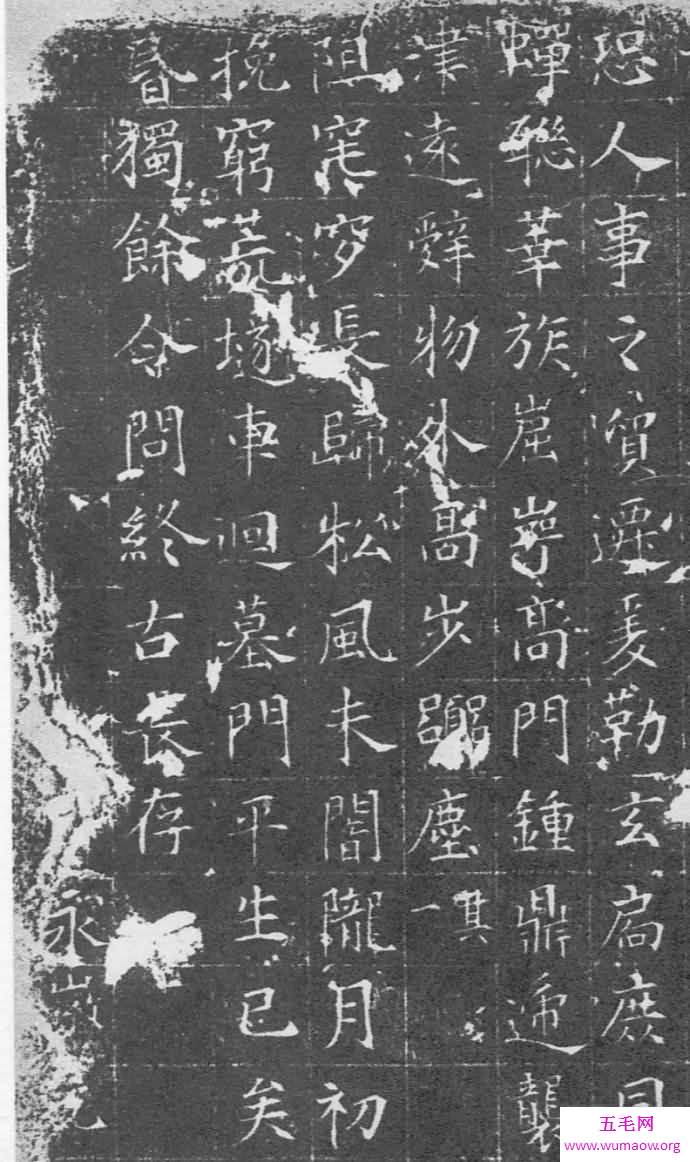 恐人事之貿遷爰勒玄扃庶同
蟬聯華族崫崿高門鍾鼎遞襲
津遠辭物外高步囂塵其一
阻窀穸長歸松風未闇隴月初
挽窮荒隧車迴墓門平生已矣
昏獨餘令問終古長存
永徽元
五毛网
www.wumaow.org